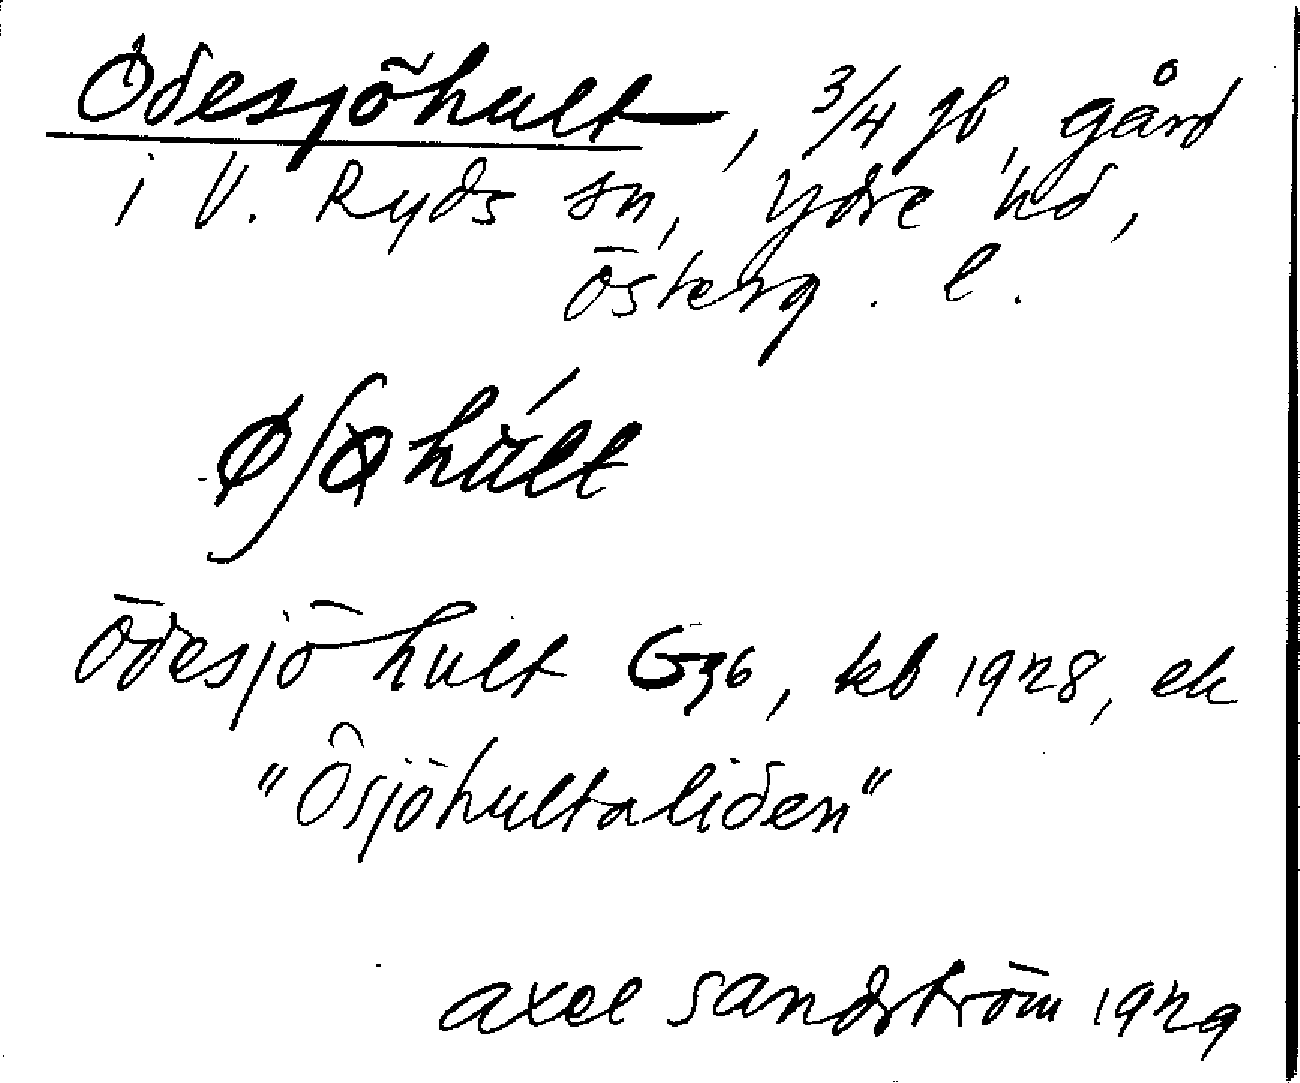 Ödesjöhult, 3/4 gb, gård
i V. Ryds sn, Ydre hd,
Österg. l.
Ödesjöhult G36, kb 1928, ek
"Ôsjöhultaliden"
Axel Sandström 1929